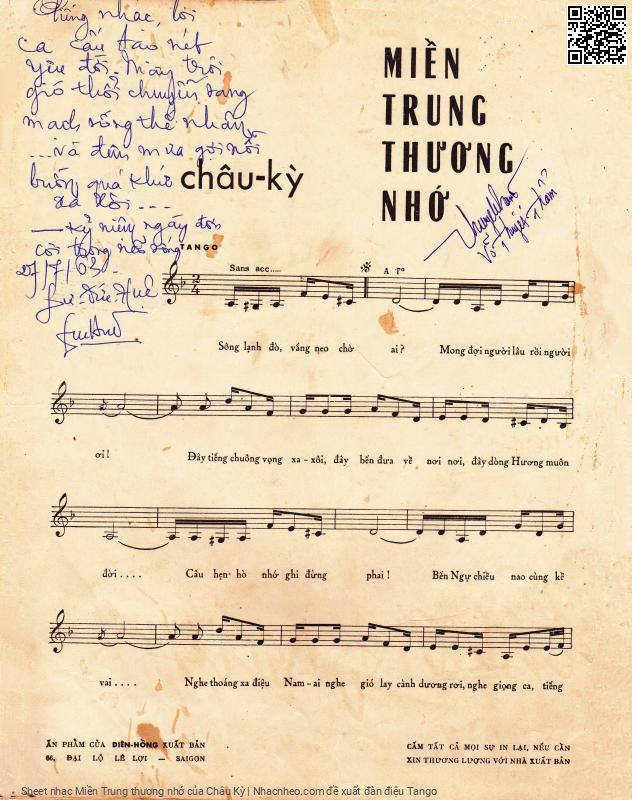 Tiếng nhạc, lời
ca cấu tạo nét
yêu đời. Mây trôi
gió thổi chuyển sang
mạch sống thế nhân
...và đêm mưa gợi nỗi
buồn quá khứ
xa xôi ...
— Kỷ niệm ngày
còi trong
27/7/03.
MIỀN
TRUNG
THƯƠNG
NHỚ
châu-kỳ
TANGO
Sans acc.....
A Tº
2
4
Sông lạnh đò, vắng nẻo chờ ai? Mong đợi người lâu rồi người
ơi! Đây tiếng chuông vọng xa-xôi, đây bến đưa về nơi nơi, đây dòng Hương muôn
đời.... Câu hẹn-hò nhớ ghi đừng phai! Bến Ngự chiều nao cùng kề
vai.... Nghe thoáng xa điệu Nam-ai nghe gió lay cành dương rơi, nghe giọng ca, tiếng
ẤN PHẨM CỦA DIÊN-HỒNG XUẤT BẢN
66, ĐẠI LỘ LÊ LỢI — SAIGON
CẤM TẤT CẢ MỌI SỰ IN LẠI, NẾU CẦN
XIN THƯƠNG LƯỢNG VỚI NHÀ XUẤT BẢN
Sheet nhạc Miền Trung thương nhớ của Châu Kỳ | Nhacnheo.com đề xuất đàn điệu Tango